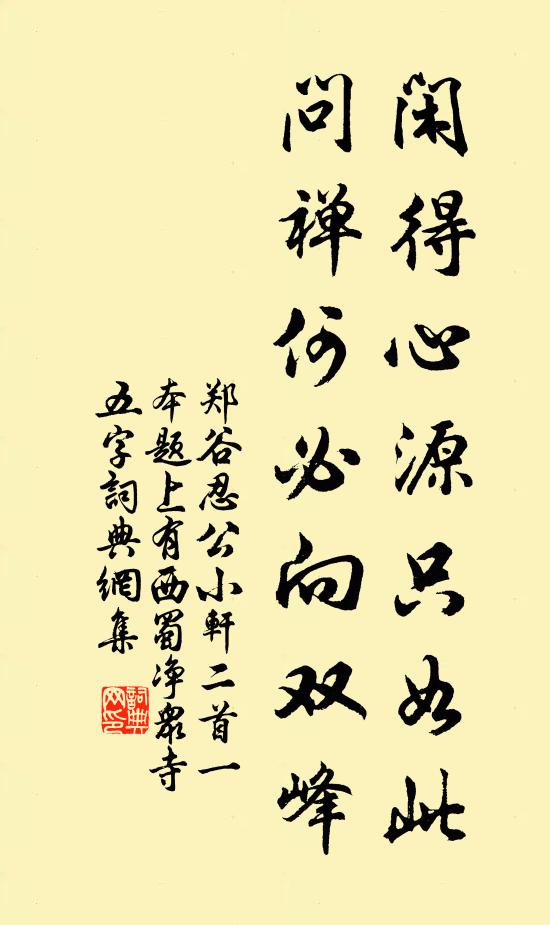 闲得心源只如此
问禅何必向双峰
郑谷忍公小軒二首一
本题上有西蜀净衆寺
五字詞典網集
詞典网印